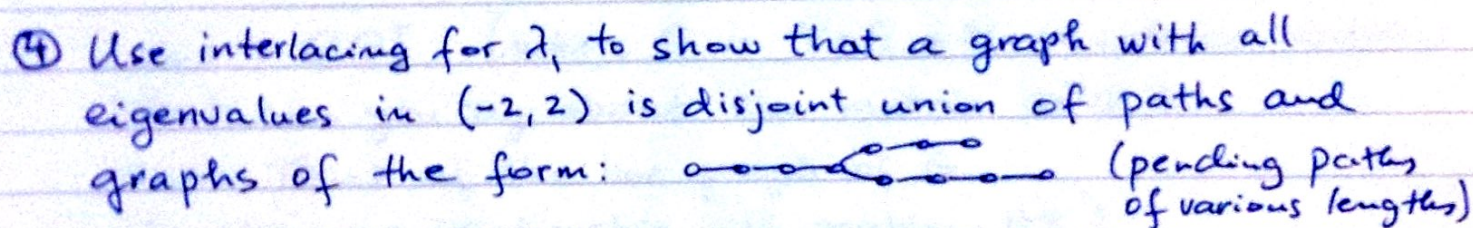 ④ Use interlacing for λ₁ to show that a graph with all
eigenvalues in (-2, 2) is disjoint union of paths and
graphs of the form: (pending paths
of various lengths)